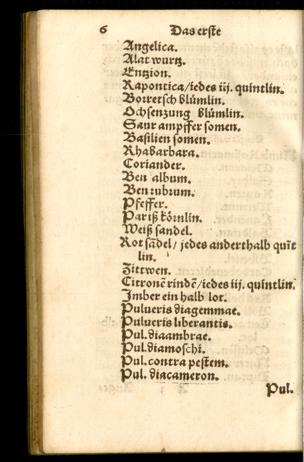 6 Das erste
Angelica.
Alat wurtz.
Entzion.
Rapontica/iedes iij. quintlin.
Borretsch blümlin.
Ochsenzung blümlin.
Saur ampffer somen.
Basilien somen.
Rhabarbara.
Coriander.
Ben album.
Ben rubrum.
Pfeffer.
Pariß körnlin.
Weiß sandel.
Rot sãdel/ jedes anderthalb quĩt
lin.
Zittwen.
Citronẽ rindẽ/iedes iij. quintlin.
Imber ein halb lot.
Pulueris diagemmae.
Pulueris liberantis.
Pul. diaambrae.
Pul. diamoschi.
Pul. contra pestem.
Pul. diacameron.
Pul.